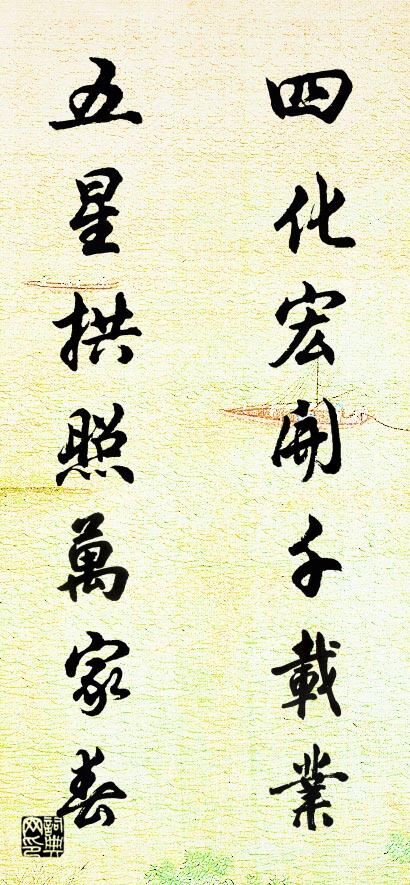 四化宏開千載業
五星拱照萬家春
詞典网印